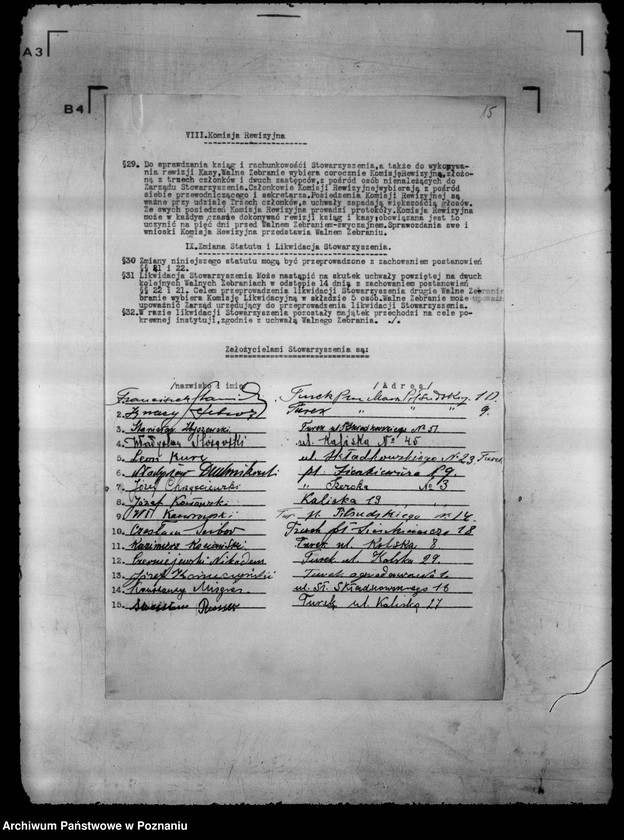 A3
B4
15
VIII.Komisja Rewizyjna
§29. Do sprawdzania ksiąg i rachunkowości Stowarzyszenia,a także do wykonywa-
nia rewizji Kasy,Walne Zebranie wybiera corocznie KomisjęRewizyjną,złożo-
ną z trzech członków i dwuch zastępców,z pośród osób nienależących do
Zarządu Stowarzyszenia.Członkowie Komisji Rewizyjnejwybierają z pośród
siebie przewodniczącego i sekretarza.Posiedzenia Komisji Rewizyjnej są
ważne przy udziale Trzech członków,a uchwały zapadają większością głosów.
Ze swych posiedzeń Komisja Rewizyjna prowadzi protokóły.Komisja Rewizyjna
może w każdym czasie dokonywać rewizji ksiąg i kasy,obowiązana jest to
uczynić na pięć dni przed Walnem Zebraniem-zwyczajnem.Sprawozdania swe i
wnioski Komisja Rewizyjna przedstawia Walnem Zebraniu.
IX.Zmiana Statutu i Likwidacja Stowarzyszenia.
§30 Zmiany niniejszego statutu mogą być przeprowadzone z zachowaniem postanowień
§§ 21 i 22.
§31 Likwidacja Stowarzyszenia Może nastąpić na skutek uchwały powziętej na dwuch
kolejnych Walnych Zebraniach w odstępie 14 dnia z zachowaniem postanowień
§§ 22 i 21. Celem przeprowadzenia likwidacji Stowarzyszenia drugie Walne Zebranie
branie wybiera Komisję Likwidacyjną w składzie 5 osób.Walne Zebranie może
upoważnić Zarząd urzędujący do przeprowadzenia likwidacji Stowarzyszenia.
§32.W razie likwidacji Stowarzyszenia pozostały majątek przechodzi na cele po-
krewnej instytuji,zgodnie z uchwałą Walnego Zebrania. ./.
Założycielami Stowarzyszenia są:
/nazwisko i imię/ /Adres/
Franciszek
2. Ignacy Turek " " " 9.
3. Stanisław Turek ul.
4. Władysław ul. Kaliska № 45
5. Leon Kurc ul. Składkowskiego № 23, Turek
6. Władysław pl. Sienkiewicza 19.
7. Józef " № 13
8. Józef Kaliska 19
9. pl. Piłsudskiego № 14
10. Czesław Serbor Turek pl. Sienkiewicza 18
11. Kazimierz Turek ul. Kolska 8.
12. Nikodem Turek ul. Kolska 29.
13. Józef Turek ogrodowa
14. Konstanty ul. St. Składkowskiego 16
15. Stanisław Turek ul. Kaliska 27
Archiwum Państwowe w Poznaniu